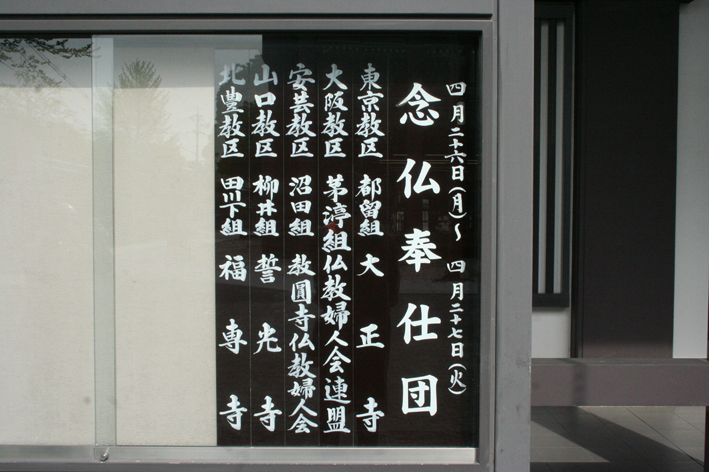 四月二十六日(月)～四月二十七日(火)
念仏奉仕団
東京教区 都留組 大正寺
大阪教区 茅渟組仏教婦人会連盟
安芸教区 沼田組 教圓寺仏教婦人会
山口教区 柳井組 誓光寺
北豊教区 田川下組 福専寺